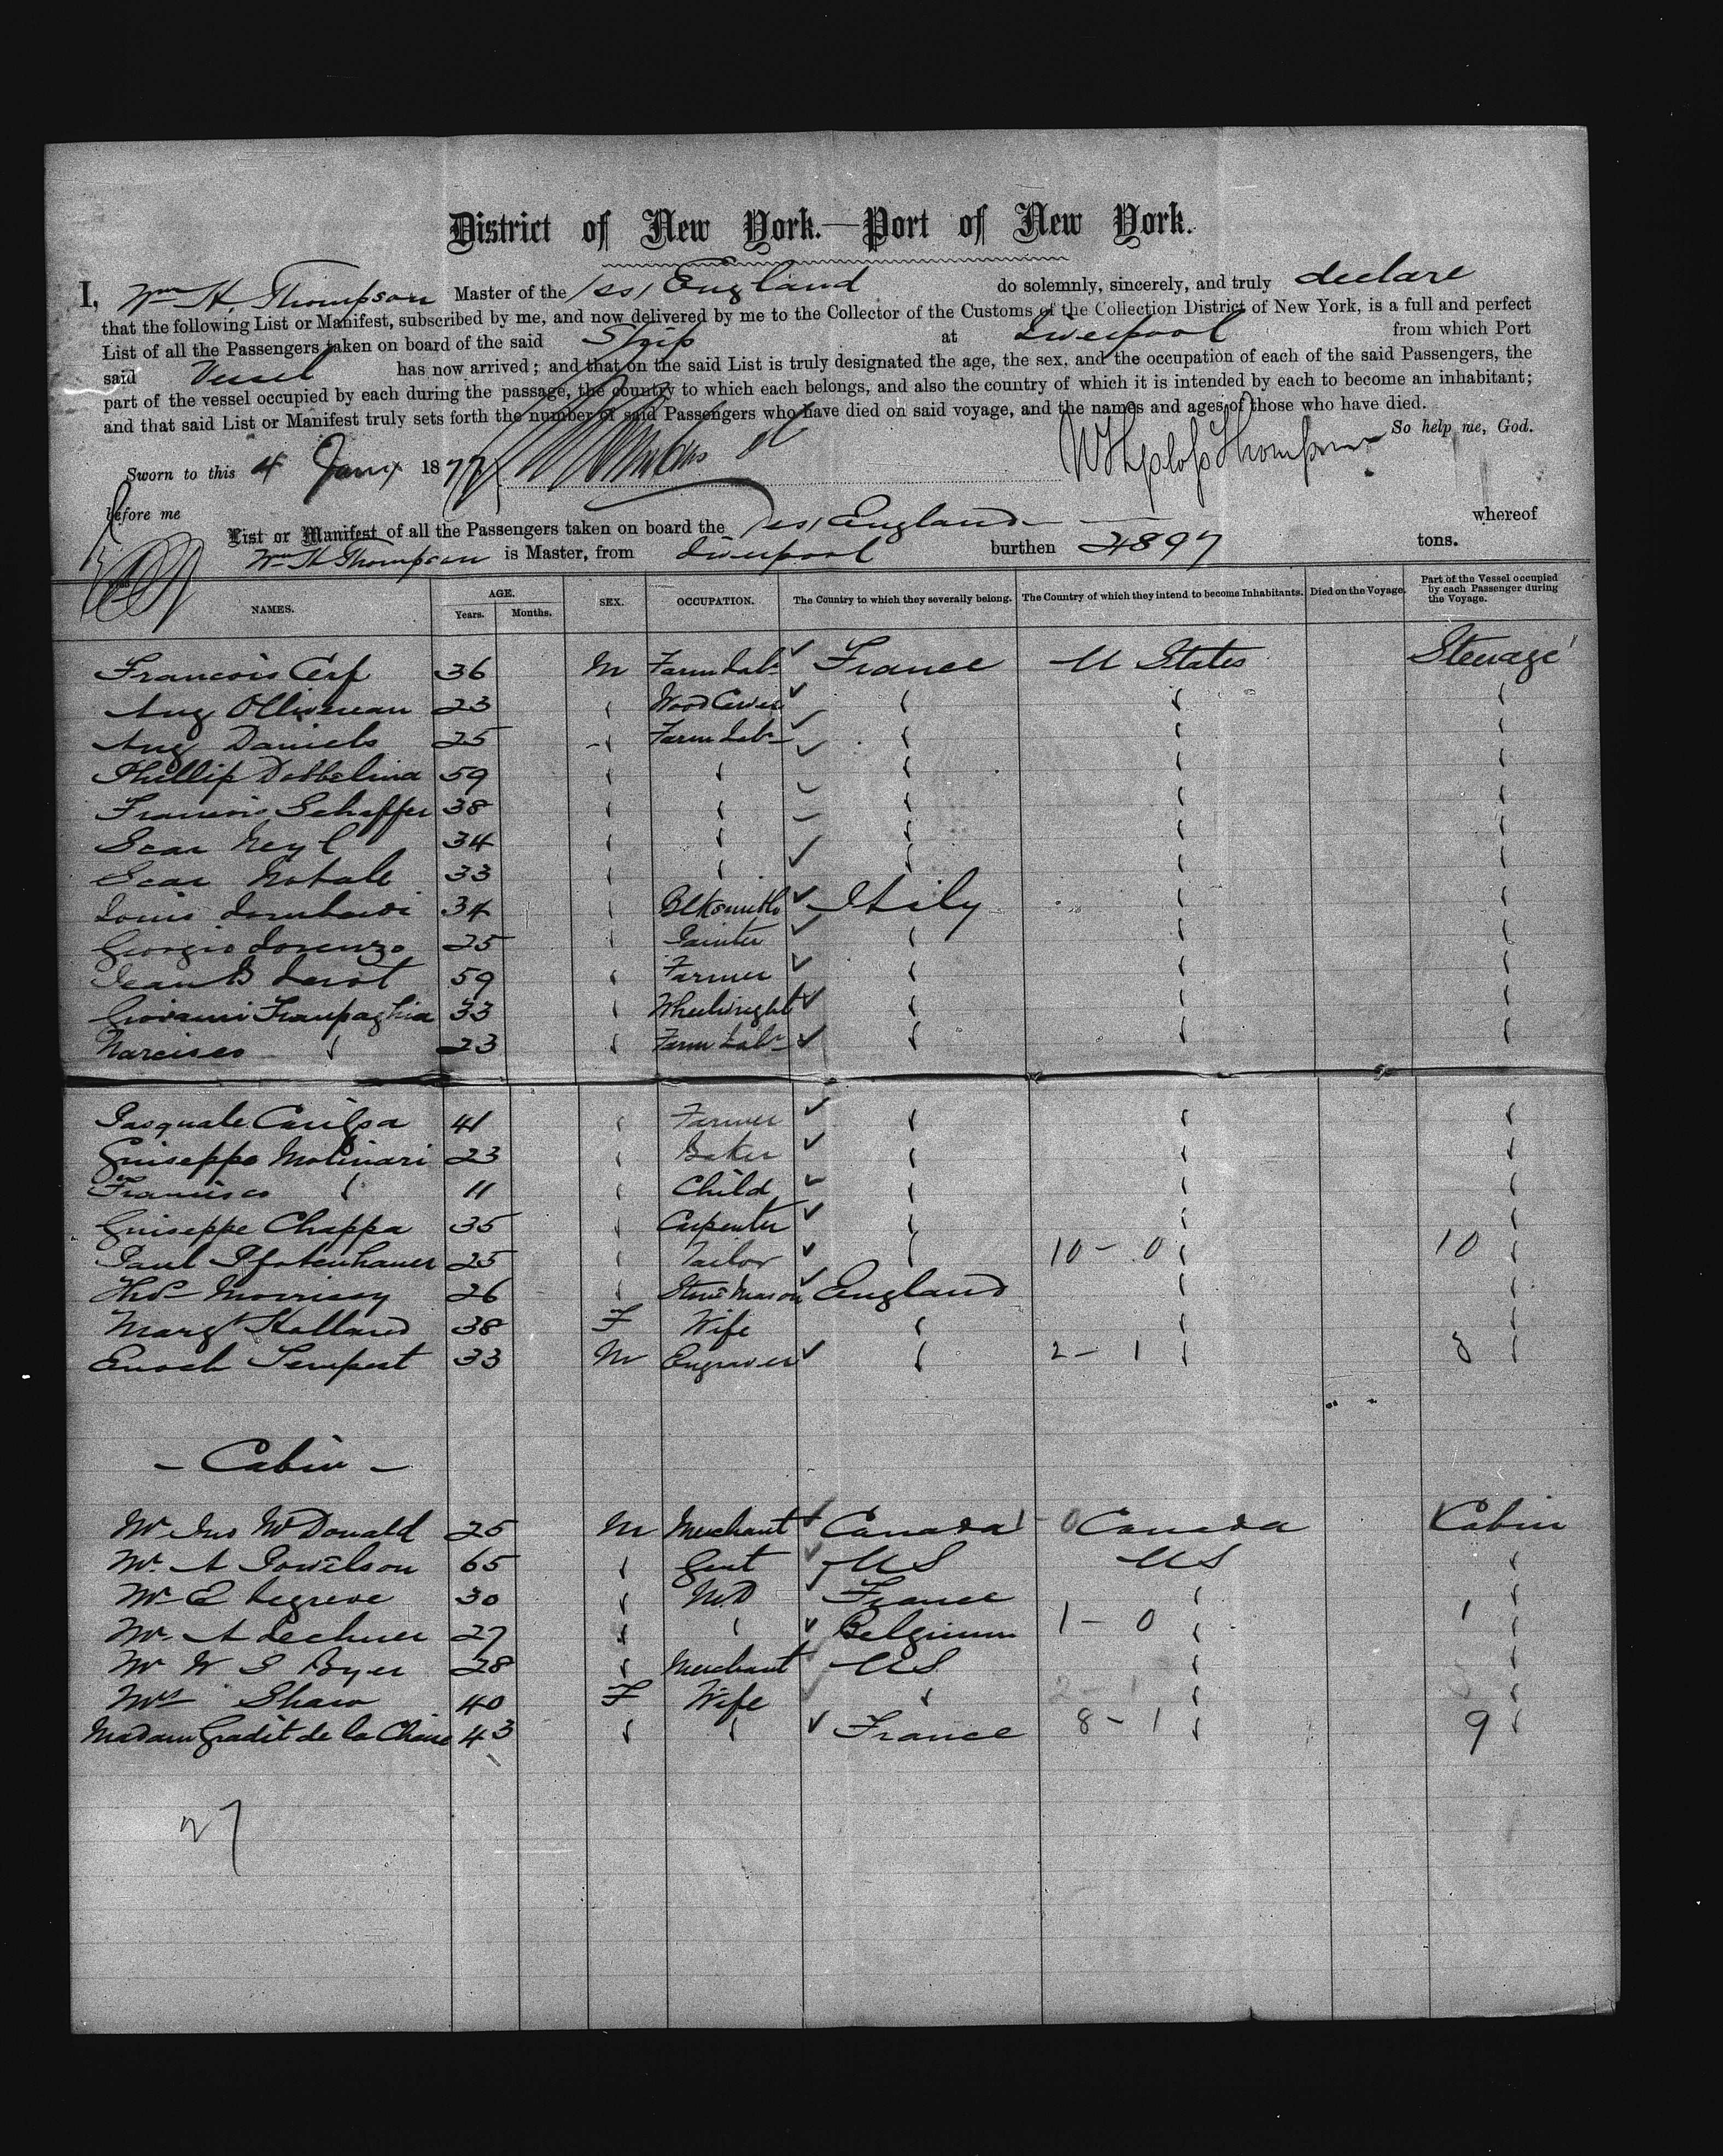 District of New York.—Port of New York.
I, Wm H. Thompson Master of the SS England do solemnly, sincerely, and truly declare
that the following List or Manifest, subscribed by me, and now delivered by me to the Collector of the Customs of the Collection District of New York, is a full and perfect
List of all the Passengers taken on board of the said Ship at Liverpool from which Port
said Vessel has now arrived; and that on the said List is truly designated the age, the sex, and the occupation of each of the said Passengers, the
part of the vessel occupied by each during the passage, the country to which each belongs, and also the country of which it is intended by each to become an inhabitant;
and that said List or Manifest truly sets forth the number of said Passengers who have died on said voyage, and the names and ages of those who have died.
So help me, God.
Sworn to this 4 Jany 1877 Thompson
before me
List or Manifest of all the Passengers taken on board the SS England whereof
Wm H Thompson is Master, from Liverpool burthen 4897 tons.
NAMES. AGE. Years. Months. SEX. OCCUPATION. The Country to which they severally belong. The Country of which they intend to become Inhabitants. Died on the Voyage. Part of the Vessel occupied by each Passenger during the Voyage.
Francois Cerf 36 M Farm Labr France U States Steerage
Aug 23
Aug Daniels 25 Farm Labr
Phillip Dobbelina 59
Francois Schaffer 38
34
33
Louis Lombardi 34 Blksmith Itily
Georgio Lorenzo 25 Painter
Jean B 59 Farmer
Giovanni 33 Wheelwright
Narcisco 23 Farm Labr
Pasquale 41 Farmer
Guiseppe Molinari 23 Baker
Francisco 11 Child
Guiseppe Chappa 35 Carpenter
Paul Pfotenhauer 25 Tailor 10 - 0 10
Thos Morrissy 26 Stone Mason England
Margt Holland 38 F Wife
Enoch Tempest 33 M Engraver 2 - 1 3
- Cabin -
Mr Jno McDonald 25 M Merchant Canada Canada Cabin
Mr A 65 Gent US US
Mr E Legreve 30 MD France
Mr A Lechner 27 Belgium 1 - 0 1
Mr W S Byer 28 Merchant US
Mrs Shaw 40 F Wife 2 - 1
Madam Gradit de la Chaise 43 France 8 - 1 9
27